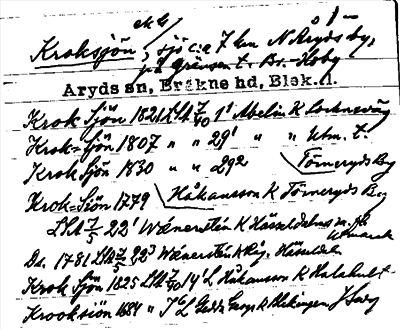 ek bl
Kroksjön, sjö c:a 7 km N Aryds by,
på gränsen t. Br.-Hoby
Aryds sn, Bräkne hd, Blek. l.
Krok Sjön 1821 LSA 7/40 1' Abelin K
Krok=Sjön 1807 " " 29' " " Utm. t.
Krok Sjön 1830 " " 29² Törneryds By
Krok=Siön 1779 Håkansson K Törneryds By
LSA 7/5 22' Wænerstén K Hässeldala m. fl.
Utmark
Ds. 1781 LSA 7/5 22³ Wænerstén K Häg. Hässeldala
Krok Sjön 1825 LSA 7/40 14' L Håkansson K Halahult
Krooksiön 1684 " K Blekingen